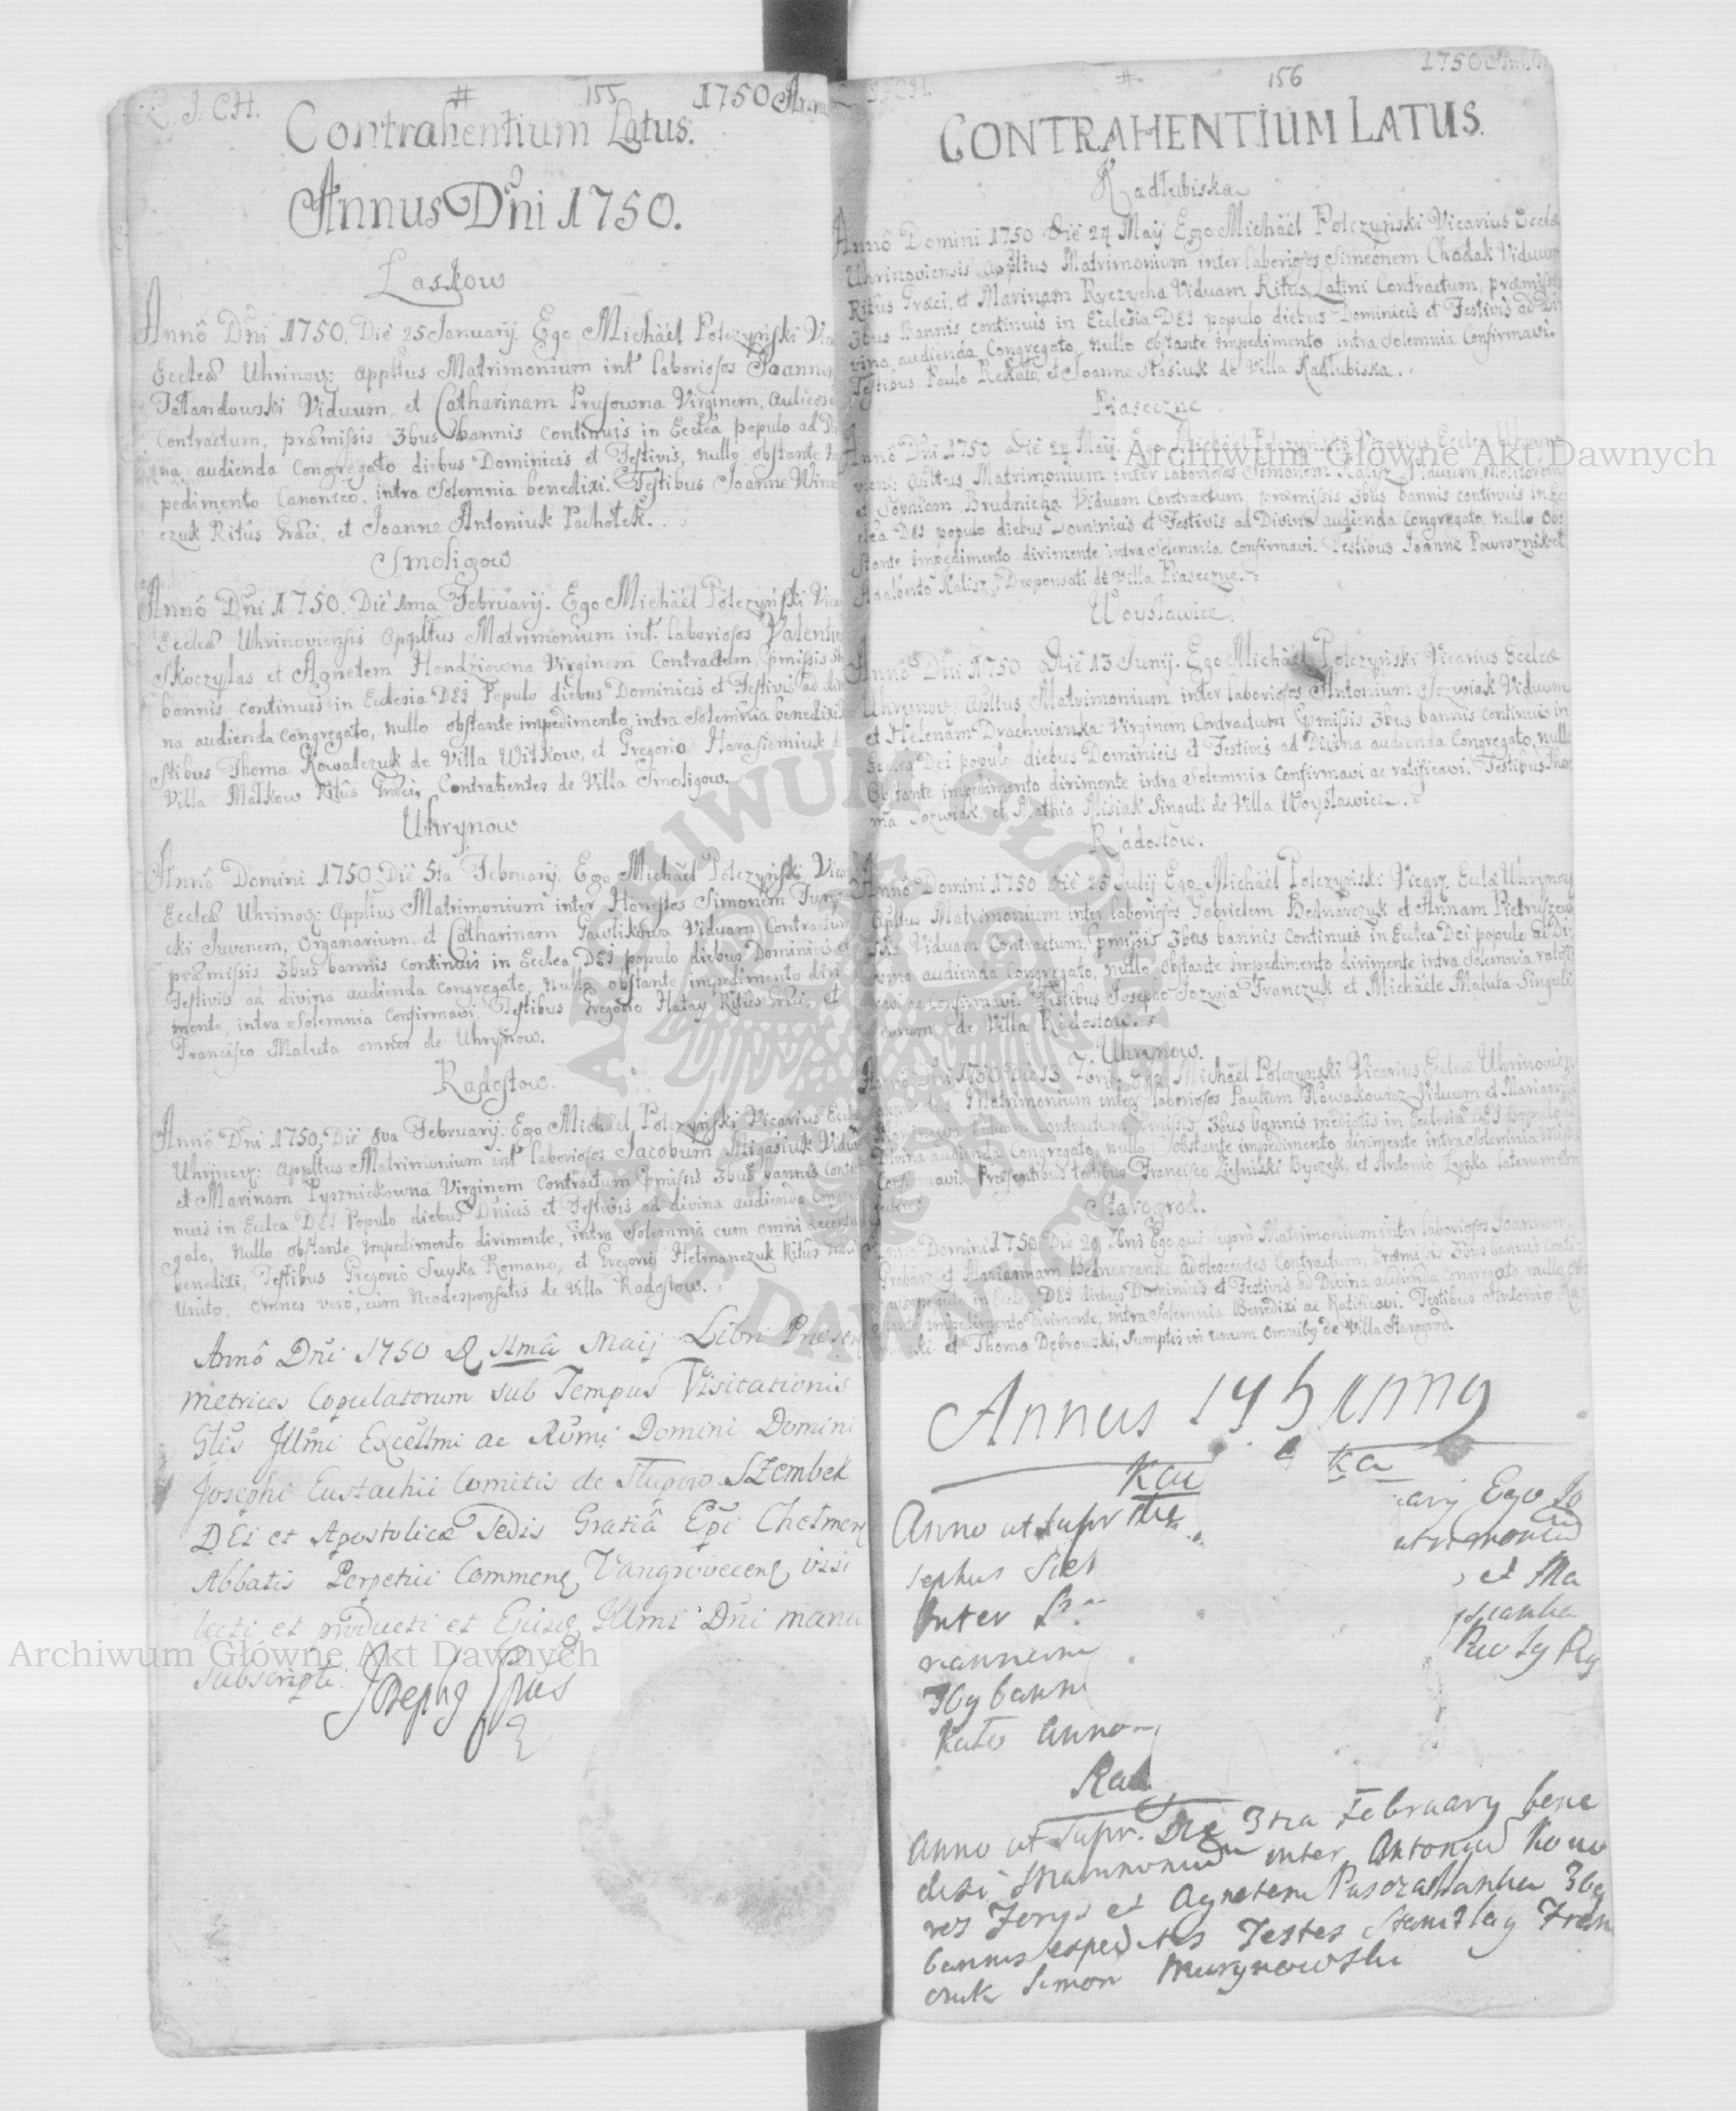 I. CH. # 155 1750 Ann
Contrahentium Latus.
Annus Dñi 1750.
Laskow
Annô Dñi 1750. Diê 25 Januarij. Ego Michäel Polczyński Vica
Eccleæ Uhrinov: appltus Matrimonium int laboriosos Joannem
Tatandowski Viduum, et Catharinam Prusowna Virginem,
Contractum, præmissis 3bus bannis continuis in Ecclea populo ad Di
na audienda Congregato diebus Dominicis et Festivis, nullo obstante Im
pedimento Canonico, intra Solemnia benedixi. Testibus Joanne
czuk Ritûs Græci, et Joanne Antoniuk Pachołek.
Smoligow
Annô Dñi 1750. Diê 1ma Februarij. Ego Michäel Polczyński Vica
Eccleæ Uhrinoviensis Appltus Matrimonium int. laboriosos Valentin
Skoczylas et Agnetem Handziowna Virginem Contractum, pmissis 3b
bannis continuis in Ecclesia DEI Populo diebus Dominicis et Festivis ad divi
na audienda congregato, nullo obstante impedimento, intra Solemnia benedixi
stibus Thoma Kowalczuk de Villa Witkow, et Gregorio Harasiemiuk d
Villa Małkow Ritûs Græci, Contrahentes de Villa Smoligow.
Uhrynow
Annô Domini 1750. Diê 5ta Februarij. Ego Michäel Polczyński Vica
Eccleæ Uhrinov: Appltus Matrimonium inter Honestos Simonem
cki Juvenem, Organarium, et Catharinam Gawlikowa Viduam Contractum
præmissis 3bus bannis continuis in Ecclea DEI populo diebus Dominicis et
Festivis ad divina audienda congregato, nullo obstante impedimento diri
mente, intra Solemnia Confirmavi, Testibus Gregorio Hatay Ritûs Græci, et
Francisco Maluta omnes de Uhrynow.
Radostow.
Annô Dñi 1750. Diê 8va Februarij. Ego Michäel Polczyński Vicarius Eccl
Uhrinov: appltus Matrimonium int laboriosos Jacobum Migasiuk Vidu
et Marinam Pyszniekowna Virginem Contractum pmissis 3bus bannis conti
nuis in Ecclea DEI Populo diebus Dñicis et Festivis ad divina audienda Congre
gato, Nullo obstante impedimento dirimente, intra Solemnia cum omni decentia
benedixi, Testibus Gregorio Suyka Romano, et Gregorio Hetmanczuk Ritûs Græci
Unito, omnes vero, cum Neodesponsatis de Villa Radostow.
Annô Dñi 1750 D 11mâ Maij Libri Præsen
metrices Copulatorum sub Tempus Visitationis
Gtis Jllmi Excellmi ac Rdmi Domini Domini
Josephi Eustachii Comitis de Słupow SZembek
DEi et Apostolicæ Sedis Gratiâ Epi Chelmen
Abbatis Perpetui Commen Vangroveceng visi
lecti et producti et Ejusq Jllmi Dñi manu
subscripti.
Josephg Epus
# 156 1750 Ann
CONTRAHENTIUM LATUS.
Kadłubiska
Annô Domini 1750 Diê 24 Maij Ego Michäel Polczyński Vicarius Eccleæ
Uhrinoviensis appltus Matrimonium inter laboriosos Simeonem Chodak Viduum
Ritûs Græci, et Marinam Ryczycha Viduam Ritûs Latini Contractum, præmissis
3bus Bannis continuis in Ecclesia DEI populo diebus Dominicis et Festivis ad Di
vina audienda Congregato, nullo obstante impedimento intra Solemnia Confirmavi.
Testibus Paulo Rekało, et Joanne Stasiuk de Villa Kadłubiska.
Piaseczne
Annô Dñi 1750 Diê 24 Maij. Ego Michäel Polczyński Vicarius Eccleæ Uhryno
viens: Appltus Matrimonium inter laboriosos Simonem Kalisz Viduum Molitorem
et Sophiam Brudnicka Viduam Contractum, præmissis 3bus bannis continuis in Ec
clea DEI populo diebus Dominicis et Festivis ad Divina audienda Congregato, nullo ob
stante impedimento dirimente intra Solemnia Confirmavi. Testibus Joanne Powroznik et
Adalberto Kalisz, Desponsati de Villa Piaseczne.
Woysławice
Annô Dñi 1750 Diê 13 Junij. Ego Michäel Polczyński Vicarius Eccleæ
Uhrynov: Appltus Matrimonium inter laboriosos Antonium Jozwiak Viduum
et Helenam Drachwianka Virginem Contractum pmissis 3bus bannis continuis in
Ecclea Dei populo diebus Dominicis et Festivis ad Divina audienda Congregato, nullo
Obstante impedimento dirimente intra Solemnia Confirmavi ac ratificavi. Testibus Tho
ma Jozwiak, et Mathia Misiak Singuli de Villa Woysławice.
Radostow.
Annô Domini 1750 Diê 25 Julij Ego Michäel Polczyński Vicarg. Eccleæ Uhrynov
Appltus Matrimonium inter laboriosos Gabrielem Bednarczuk et Annam Pietruszew
ska Viduam Contractum, pmissis 3bus bannis continuis in Ecclea Dei populo ad Di
vina audienda Congregato, nullo obstante impedimento dirimente intra Solemnia ratifi
cavi ac Confirmavi. Testibus Josepho Jozwia Franczuk et Michäele Maluta Singuli
eorum de Villa Radostow.
Uhrynow.
Annô Dñi 1750 Diê 13 7bris Ego Michäel Polczyński Vicarius Eccleæ Uhrinovien
Appltus Matrimonium inter laboriosos Paulum Nowakowicz Viduum et Mariannam
Viduam Contractum pmissis 3bus bannis mediatis in Ecclesia DEI populo ad
Divina audienda Congregato, nullo obstante impedimento dirimente intra Solemnia
Confirmavi. Præsentibus testibus Francisco Liesnilski Byczek, et Antonio Łyska laterum
Starogrod.
Annô Domini 1750 Diê 20 Ego qui suprà Matrimonium inter laboriosos Joannem
Grabarz et Mariannam Bednarzanka adolescentes Contractum, Præmissis 3bus bannis Conti
nuis populo in Ecclea DEI diebus Dominicis et Festivis ad Divina audienda congregato nullo ob
stante impedimento dirimente, intra Solemnia Benedixi ac Ratificavi. Testibus Antonio
ki et Thoma Dębrowski, Sumptis in unum Omnibg de Villa Starogrod.
Annus 17 5 anng
Kau Ka
Anno ut supr die arij Ego Jo
sephus Siel atrimoniu
Inter et Ma
riannam scianka
3bg bann Pau
Kato Anno
Rad
Anno ut supr. Die 3tia February bene
dixi Matrimoniu inter Antoniu Kono
res Jorys et Agnetem 3bg
bannis expeditis Testes Stanislag Fran
czuk Simon Murynowski
Archiwum Główne Akt Dawnych
Archiwum Główne Akt Dawnych
ARCHIWUM GŁÓWNE AKT DAWNYCH